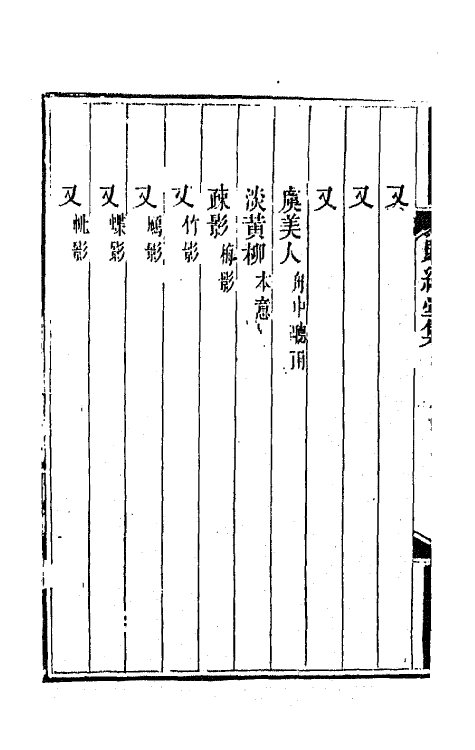 又
又
又
虞美人 舟中聽雨
淡黃柳 本意
疎影 梅影
又 竹影
又 影
又 蝶影
又 帆影